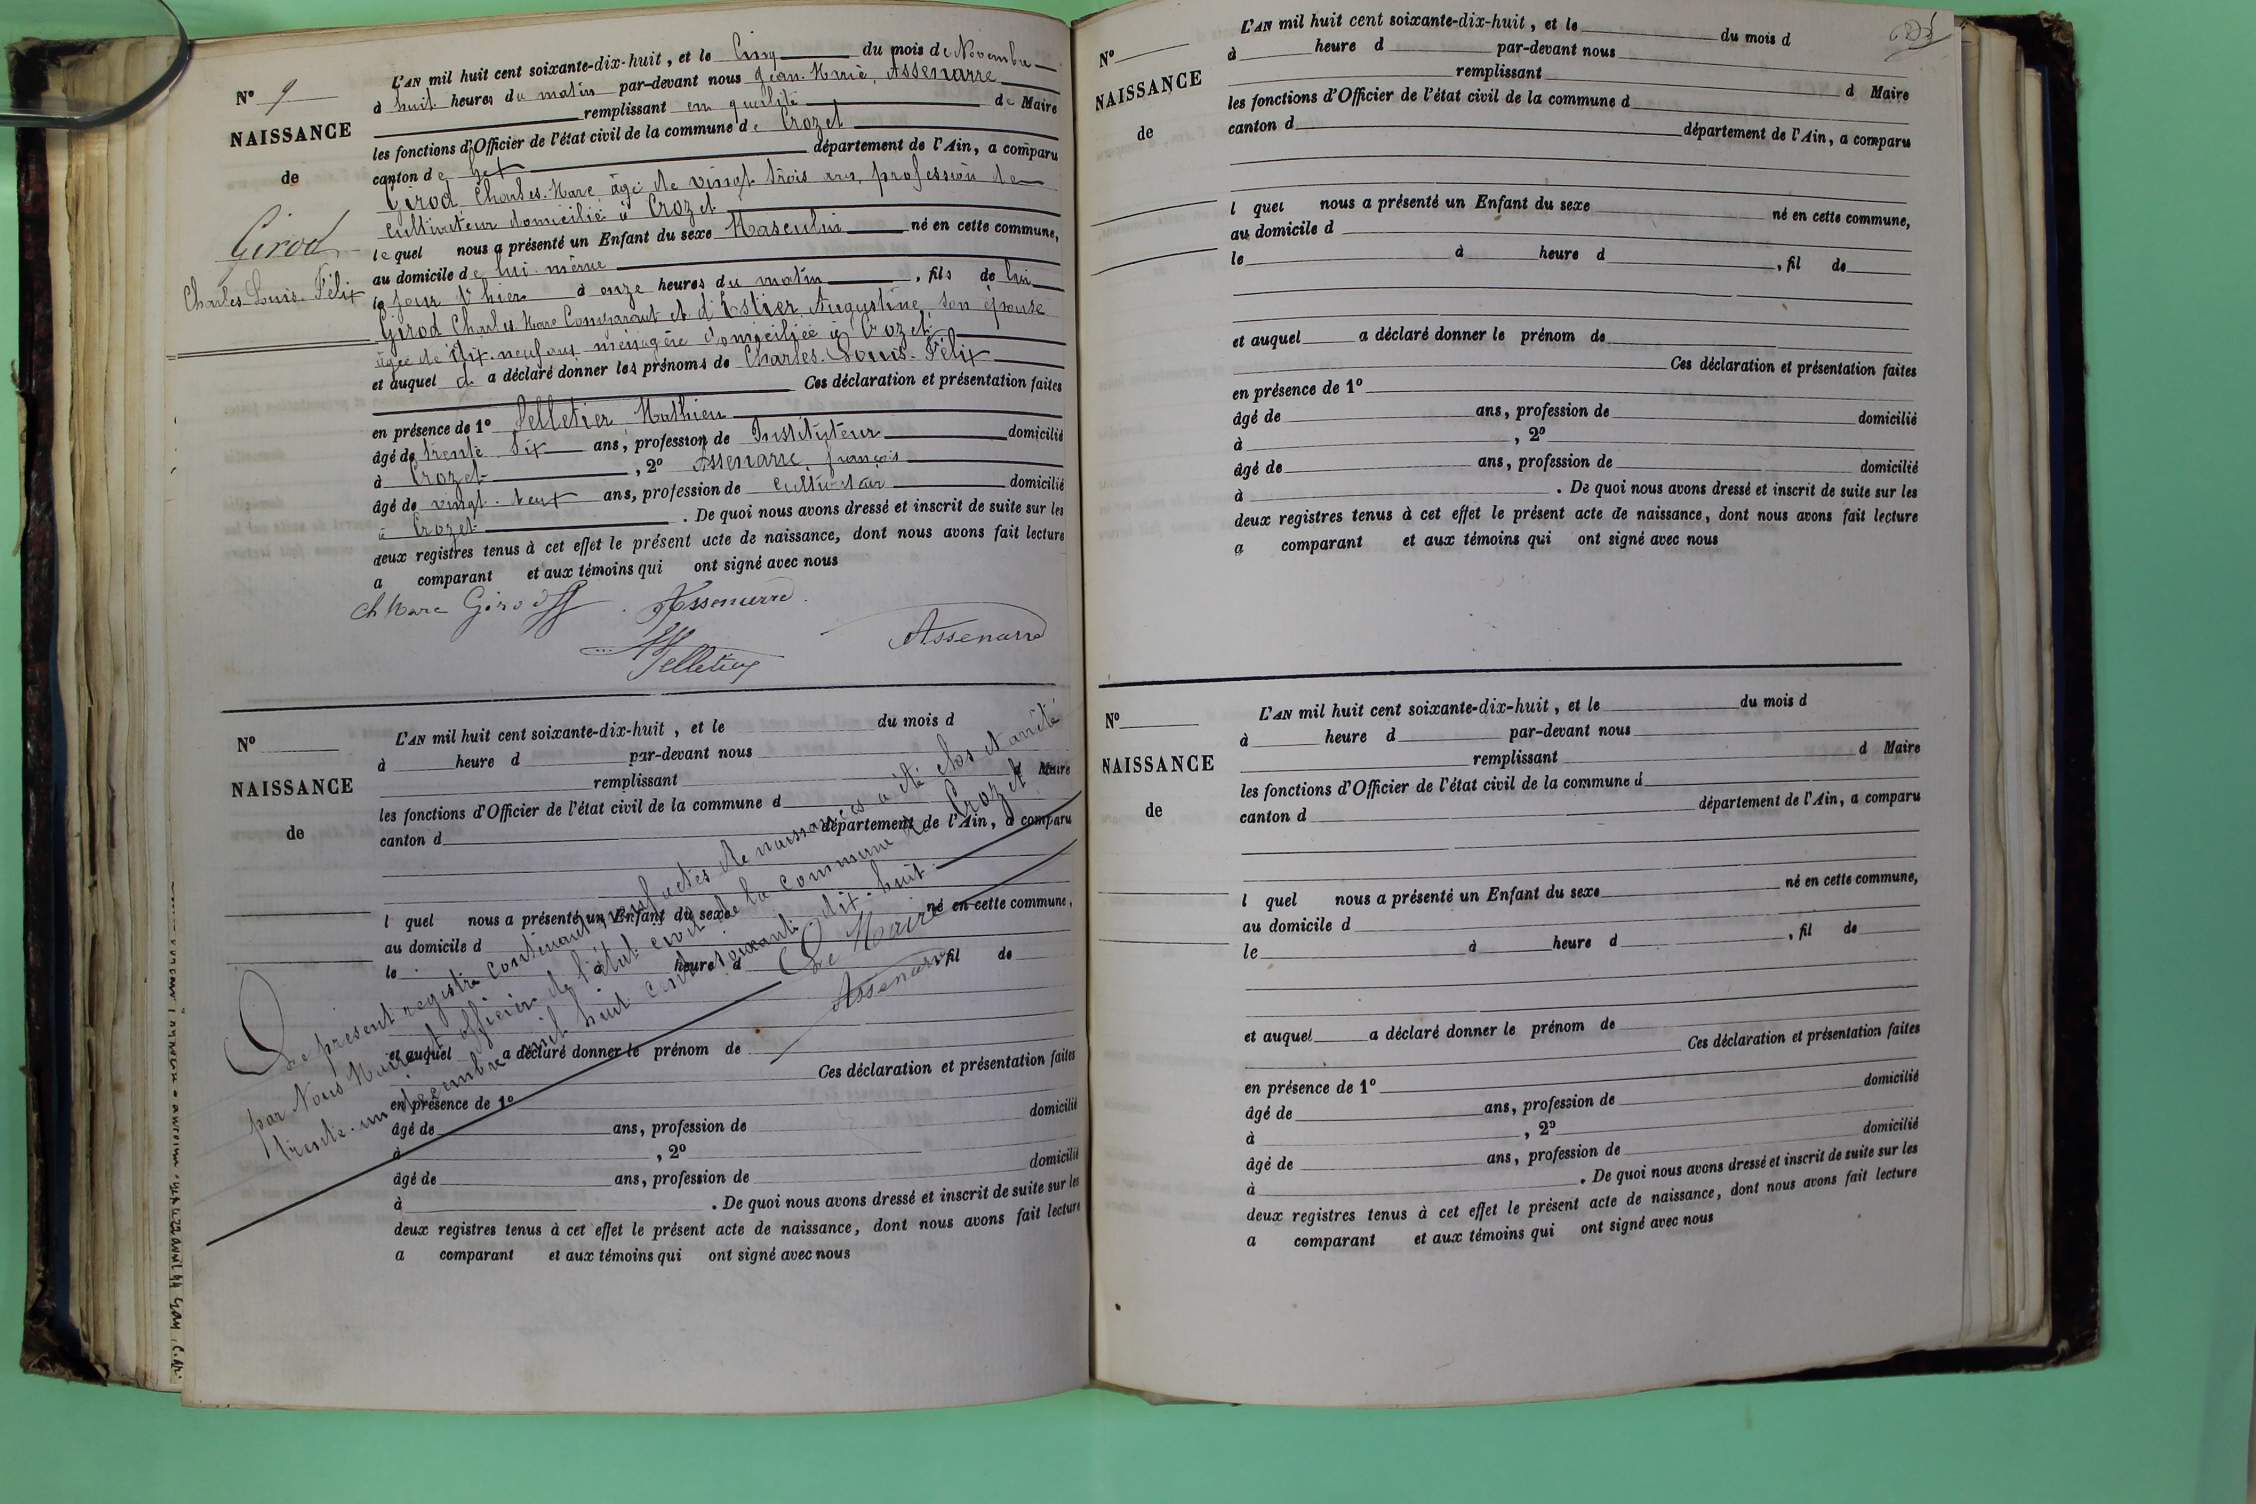 N° 9
NAISSANCE
de
Girod
Charles-Louis-Félix
L'AN mil huit cent soixante-dix-huit, et le Cinq du mois de Novembre
à huit heures du matin par-devant nous Jean-Marie, Assenarre
remplissant en qualité de Maire
les fonctions d'Officier de l'état civil de la commune de Crozet
canton de Gex département de l'Ain, a comparu
Girod Charles-Marc âgé de vingt trois ans, profession de
cultivateur domicilié à Crozet
lequel nous a présenté un Enfant du sexe Masculin né en cette commune,
au domicile de lui-même
le jour d'hier à onze heures du matin, fils de lui
Girod Charles Marc Comparant et d'Estier Augustine, son épouse
âgée de dix-neuf ans ménagère domiciliée à Crozet
et auquel il a déclaré donner les prénoms de Charles-Louis-Félix
Ces déclaration et présentation faites
en présence de 1° Pelletier Mathieu
âgé de trente six ans, profession de Instituteur domicilié
à Crozet, 2° Assenarre, françois
âgé de vingt-neuf ans, profession de cultivateur domicilié
à Crozet. De quoi nous avons dressé et inscrit de suite sur les
deux registres tenus à cet effet le présent acte de naissance, dont nous avons fait lecture
a comparant et aux témoins qui ont signé avec nous
Ch Marc Girod Assenarre
Pelletier Assenarre
N°
NAISSANCE
de
L'AN mil huit cent soixante-dix-huit, et le du mois d
à heure d par-devant nous
remplissant d Maire
les fonctions d'Officier de l'état civil de la commune d
canton d département de l'Ain, a comparu
l quel nous a présenté un Enfant du sexe né en cette commune,
au domicile d
le à heure d , fil de
et auquel a déclaré donner le prénom de
Ces déclaration et présentation faites
en présence de 1°
âgé de ans, profession de domicilié
à , 2°
âgé de ans, profession de domicilié
à . De quoi nous avons dressé et inscrit de suite sur les
deux registres tenus à cet effet le présent acte de naissance, dont nous avons fait lecture
a comparant et aux témoins qui ont signé avec nous
Le présent registre contenant neuf actes de naissances a été clos et arrêté
par Nous Maire et officier de l'état civil de la commune de Crozet
trente-un décembre mil huit cent soixante dix-huit
Le Maire
Assenarre
N°
NAISSANCE
de
L'AN mil huit cent soixante-dix-huit, et le du mois d
à heure d par-devant nous
remplissant d Maire
les fonctions d'Officier de l'état civil de la commune d
canton d département de l'Ain, a comparu
l quel nous a présenté un Enfant du sexe né en cette commune,
au domicile d
le à heure d , fil de
et auquel a déclaré donner le prénom de
Ces déclaration et présentation faites
en présence de 1°
âgé de ans, profession de domicilié
à , 2°
âgé de ans, profession de domicilié
à . De quoi nous avons dressé et inscrit de suite sur les
deux registres tenus à cet effet le présent acte de naissance, dont nous avons fait lecture
a comparant et aux témoins qui ont signé avec nous
N°
NAISSANCE
de
L'AN mil huit cent soixante-dix-huit, et le du mois d
à heure d par-devant nous
remplissant d Maire
les fonctions d'Officier de l'état civil de la commune d
canton d département de l'Ain, a comparu
l quel nous a présenté un Enfant du sexe né en cette commune,
au domicile d
le à heure d , fil de
et auquel a déclaré donner le prénom de
Ces déclaration et présentation faites
en présence de 1°
âgé de ans, profession de domicilié
à , 2°
âgé de ans, profession de domicilié
à . De quoi nous avons dressé et inscrit de suite sur les
deux registres tenus à cet effet le présent acte de naissance, dont nous avons fait lecture
a comparant et aux témoins qui ont signé avec nous